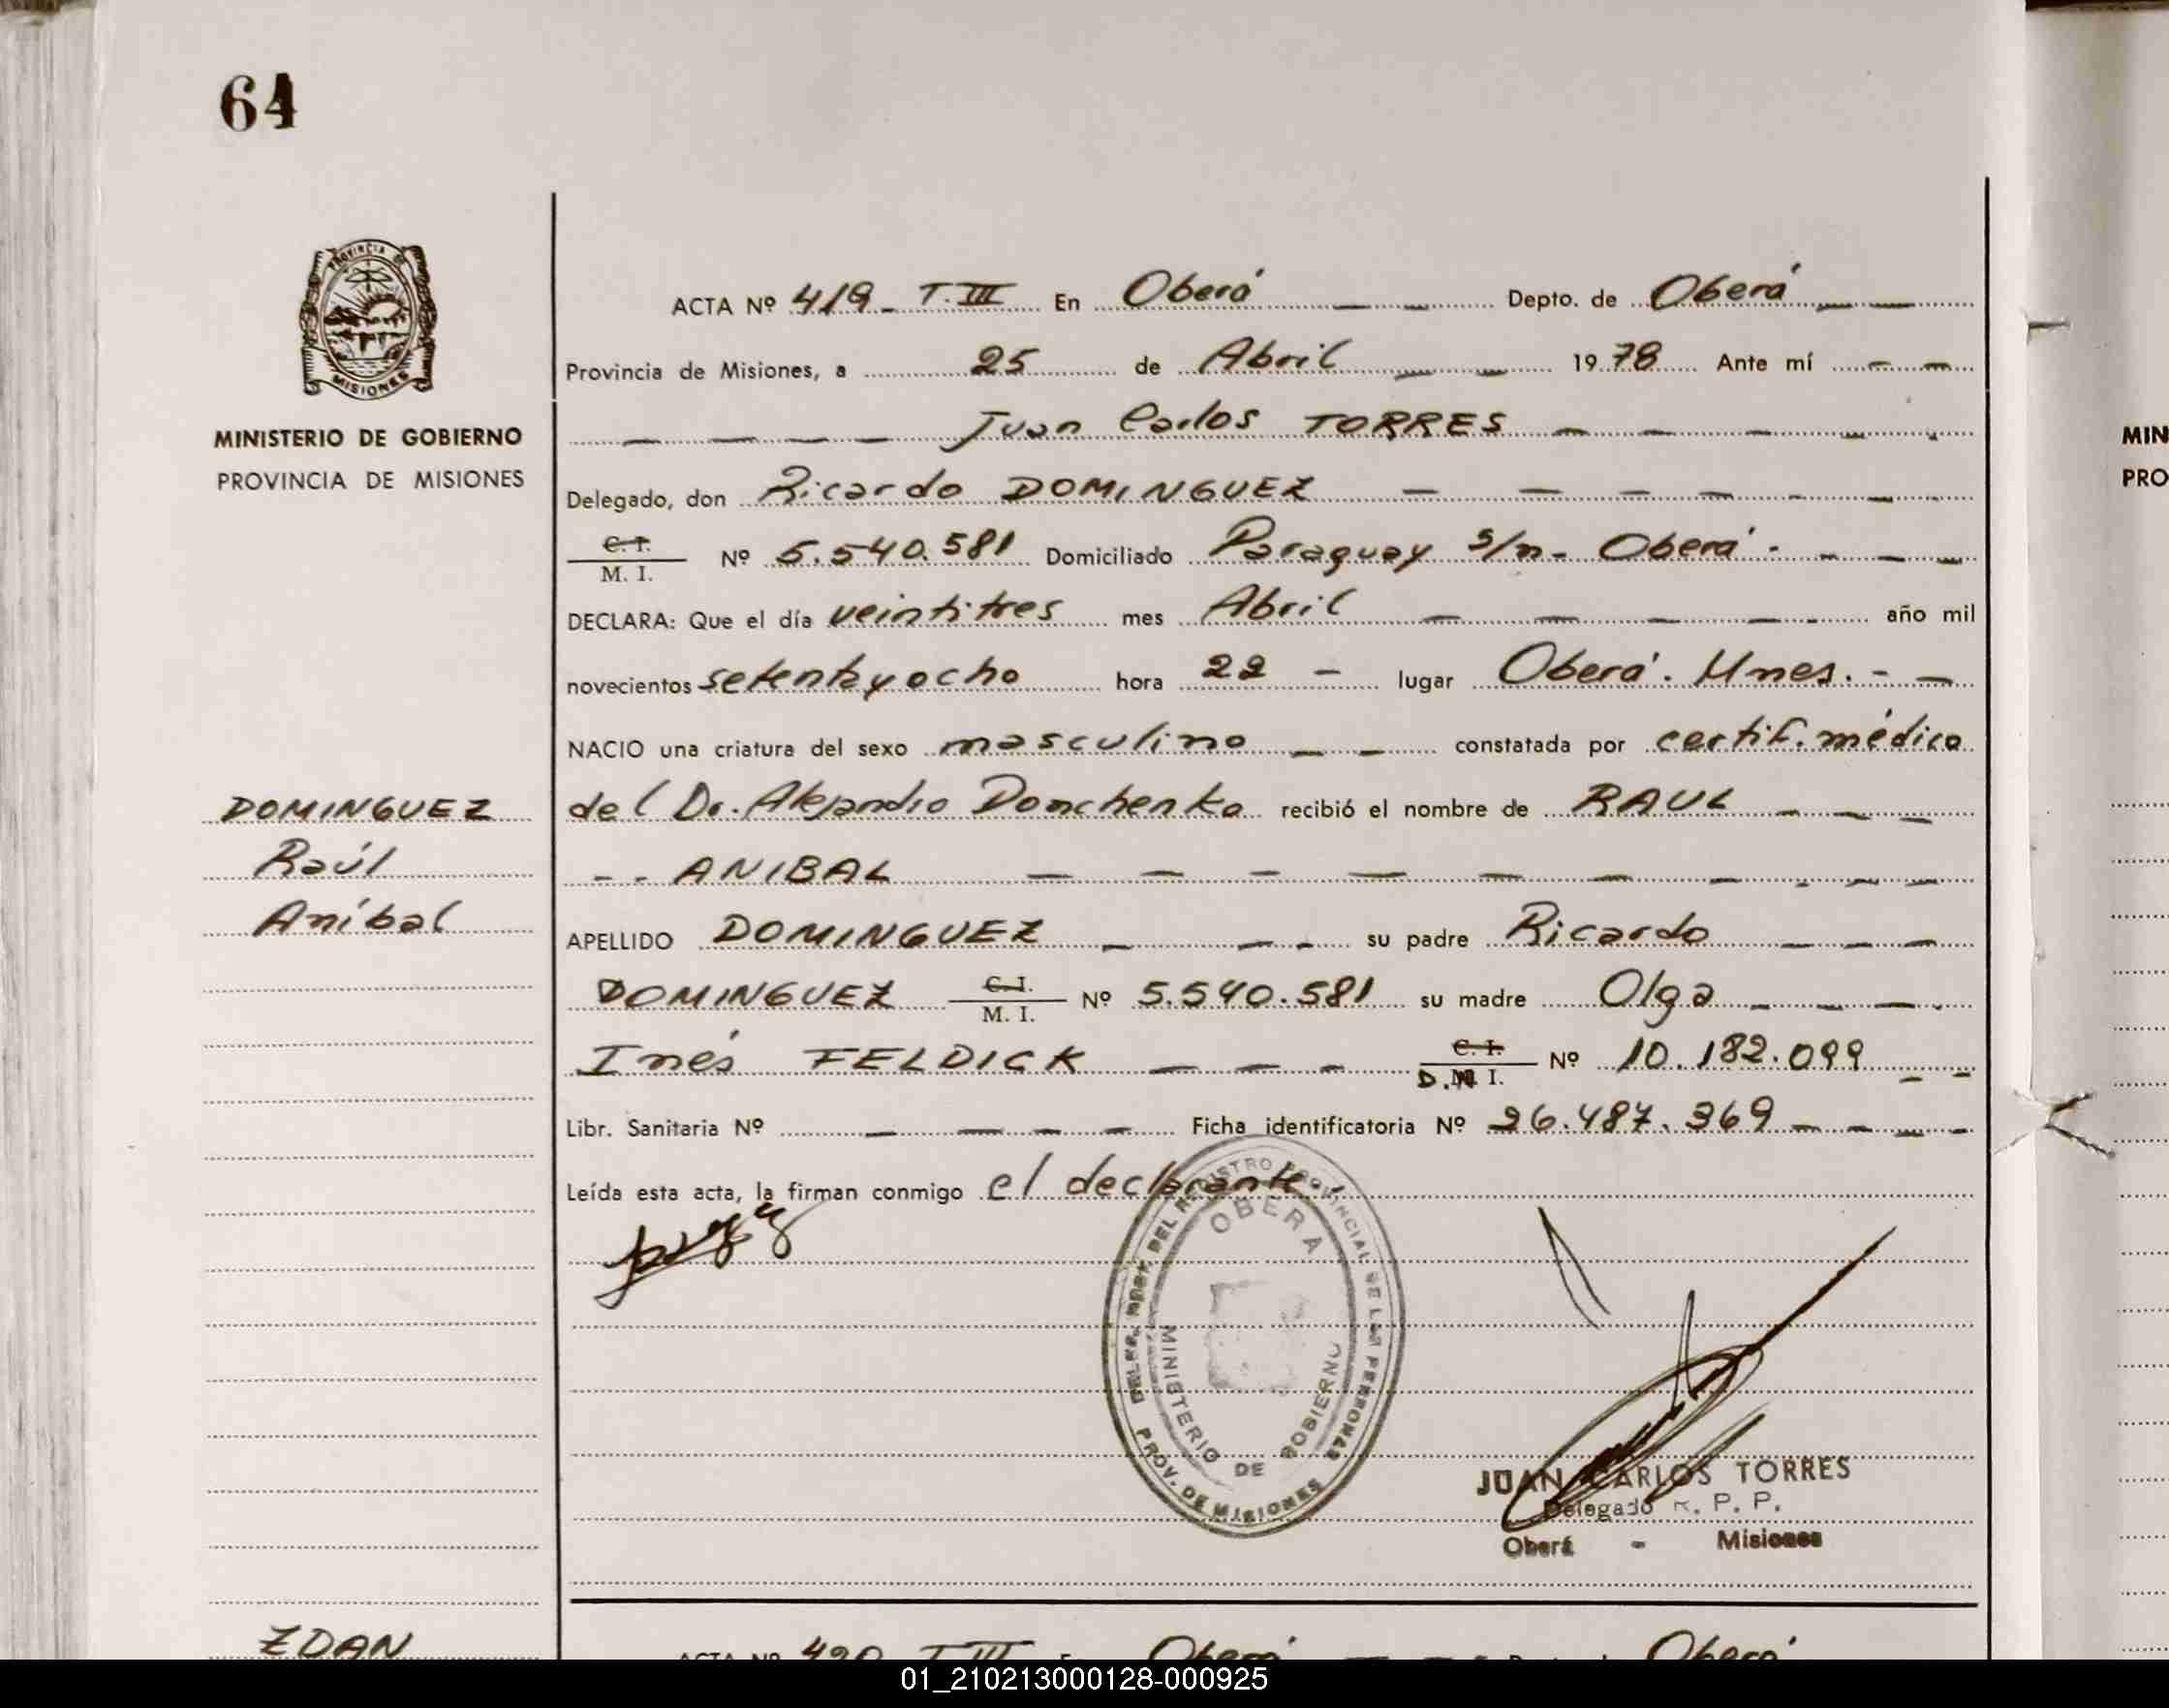 64
PROVINCIA DE
MISIONES
MINISTERIO DE GOBIERNO
PROVINCIA DE MISIONES
ACTA Nº 419 - T. III En Oberá Depto. de Oberá
Provincia de Misiones, a 25 de Abril 1978 Ante mí
Juan Carlos TORRES
Delegado, don Ricardo DOMINGUEZ
C. I.
M. I. Nº 5.540.581 Domiciliado Paraguay s/n - Oberá -
DECLARA: Que el día veintitres mes Abril año mil
novecientos setentayocho hora 22 - lugar Oberá. Mnes. -
NACIO una criatura del sexo masculino constatada por certif. médico
DOMINGUEZ
Raúl
Aníbal
del Dr. Alejandro Domchenko recibió el nombre de RAUL
ANIBAL
APELLIDO DOMINGUEZ su padre Ricardo
DOMINGUEZ C. I. M. I. Nº 5.540.581 su madre Olga
Inés FELDICK C. I. D. N. I. Nº 10.182.099
Libr. Sanitaria Nº Ficha identificatoria Nº 26.487.369
Leída esta acta, la firman conmigo el declarante.
DEL REGISTRO PROVINCIAL DE LAS PERSONAS
OBERA
MINISTERIO DE GOBIERNO
PROV. DE MISIONES
JUAN CARLOS TORRES
Delegado R. P. P.
Oberá - Misiones
ZDAN
ACTA Nº 420 T III Oberá Oberá
MIN
PRO
01_210213000128-000925